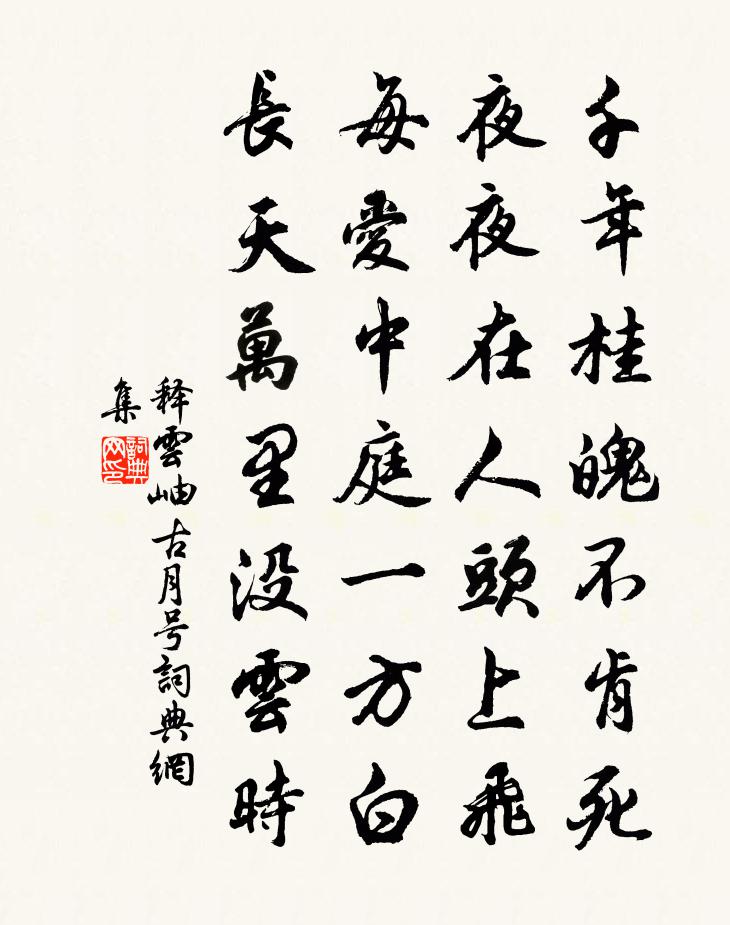 千年桂魄不肯死
夜夜夜在人頭上飛
每愛中庭一方白
長天萬里没雲時
释雲岫古月号詞典網
集
詞典网印